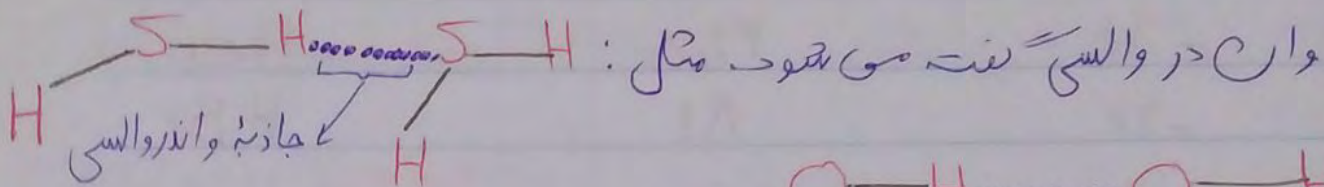 وان در والسی گفته می شود. مثل: H S H S H
جاذبهٔ واندروالسی H H
O H O H